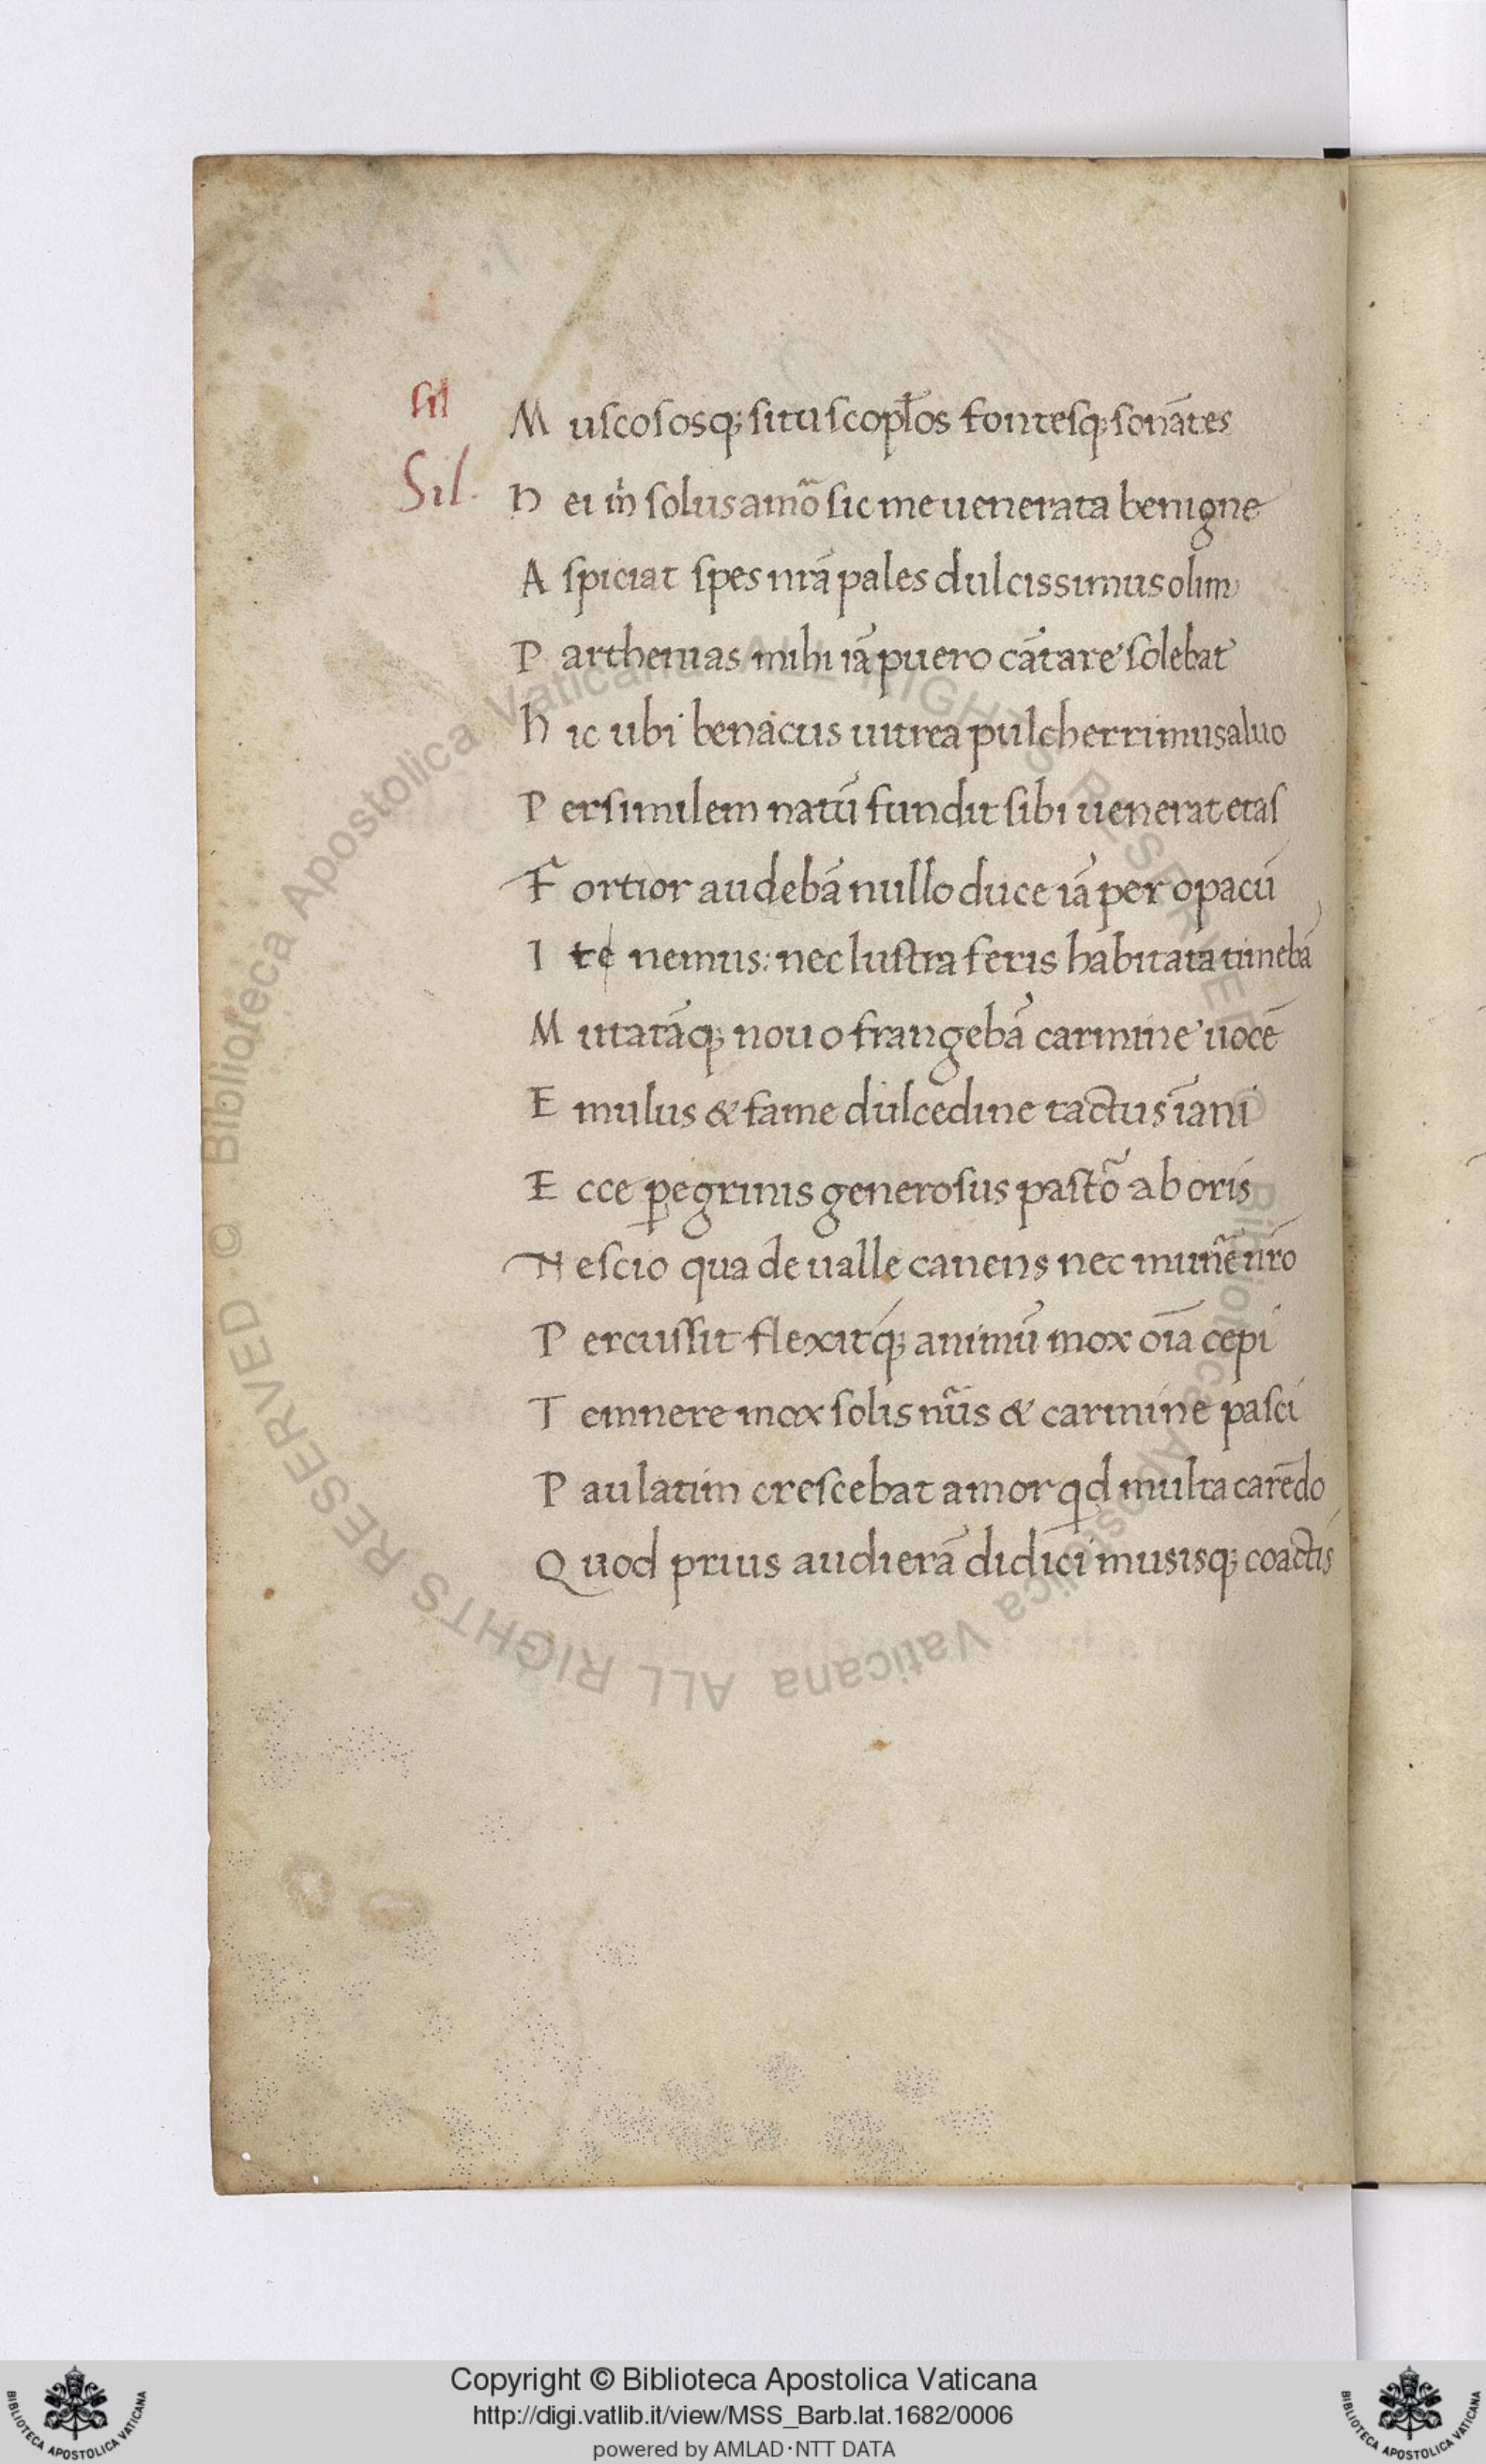 sil
Muscososq; situ scopłos fontesq; sonātes
Sil.
Nei m̊ solus amõ sic me uenerata benigne
Aspiciat spes nr̄a pales dulcissimus olim
Parthenias mihi iā puero cātare solebat
Hic ubi benacus uitrea pulcherrimus aluo
Persimilem natū fundit sibi uenerat etas
Fortior audebā nullo duce iā per opacū
Ite nemus: nec lustra feris habitata timebā
Mutatāq; nouo frangebā carmine uocē
Emulus & fame dulcedine tactus īani
Ecce ꝑegrinis generosus pastõ ab oris
Nescio qua de ualle canens nec mun̄e nr̄o
Percussit flexitq; animū mox oīa cepi
Temnere mox solis nūis & carmine pasci
Paulatim crescebat amor qd multa carēdo
Quod prius audierā didici musisq; coactis
© Biblioteca Apostolica Vaticana ALL RIGHTS RESERVED © Biblioteca Apostolica Vaticana ALL RIGHTS RESERVED
Copyright © Biblioteca Apostolica Vaticana
http://digi.vatlib.it/view/MSS_Barb.lat.1682/0006
powered by AMLAD·NTT DATA
BIBLIOTECA APOSTOLICA VATICANA
BIBLIOTECA APOSTOLICA VATICANA